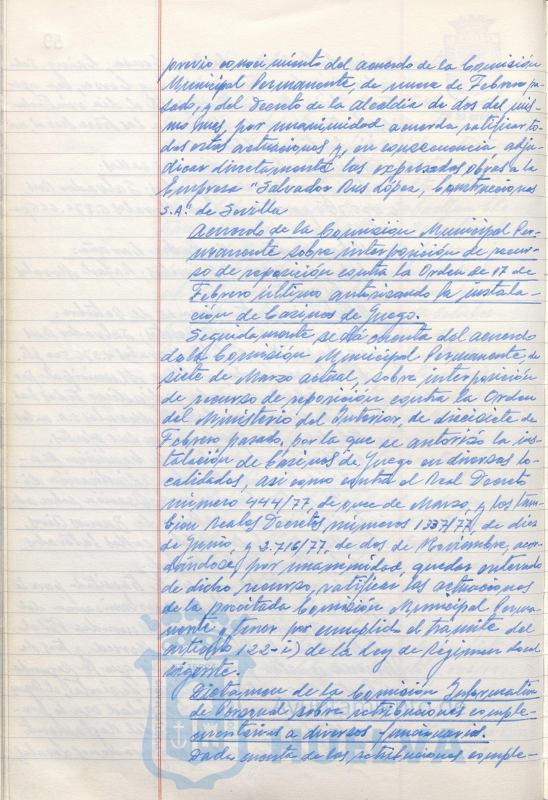 previo conocimiento del acuerdo de la Comisión
Municipal Permanente, de nueve de Febrero pa-
sado, y del Decreto de la Alcaldía de dos del mis-
mo mes, por unanimidad acuerda ratificar to-
das estas actuaciones y, en consecuencia, adju-
dicar directamente las expresadas obras a la
Empresa "Salvador Rus López, Construcciones
S.A." de Sevilla
Acuerdo de la Comisión Municipal Per-
manente sobre interposición de recur-
so de reposición contra la Orden de 17 de
Febrero último autorizando la instala-
ción de Casinos de Juego.
Seguidamente se dá cuenta del acuerdo
de la Comisión Municipal Permanente, de
siete de Marzo actual, sobre interposición
de recurso de reposición contra la Orden
del Ministerio del Interior, de diecisiete de
Febrero pasado, por la que se autoriza la ins-
talación de Casinos de Juego en diversas lo-
calidades, así como contra el Real Decreto
número 444/77, de once de Marzo, y los tam-
bién Reales Decretos, números 1337/77, de diez
de Junio, y 2.716/77, de dos de Noviembre, acor-
dándose, por unanimidad, quedar enterado
de dicho recurso, ratificar las actuaciones
de la precitada Comisión Municipal Perma-
nente y tener por cumplido el trámite del
artículo 122-i) de la Ley de Régimen Local
vigente.
Dictamen de la Comisión Informativa
de Personal sobre retribuciones comple-
mentarias a diversos funcionarios.
Dada cuenta de las retribuciones comple-